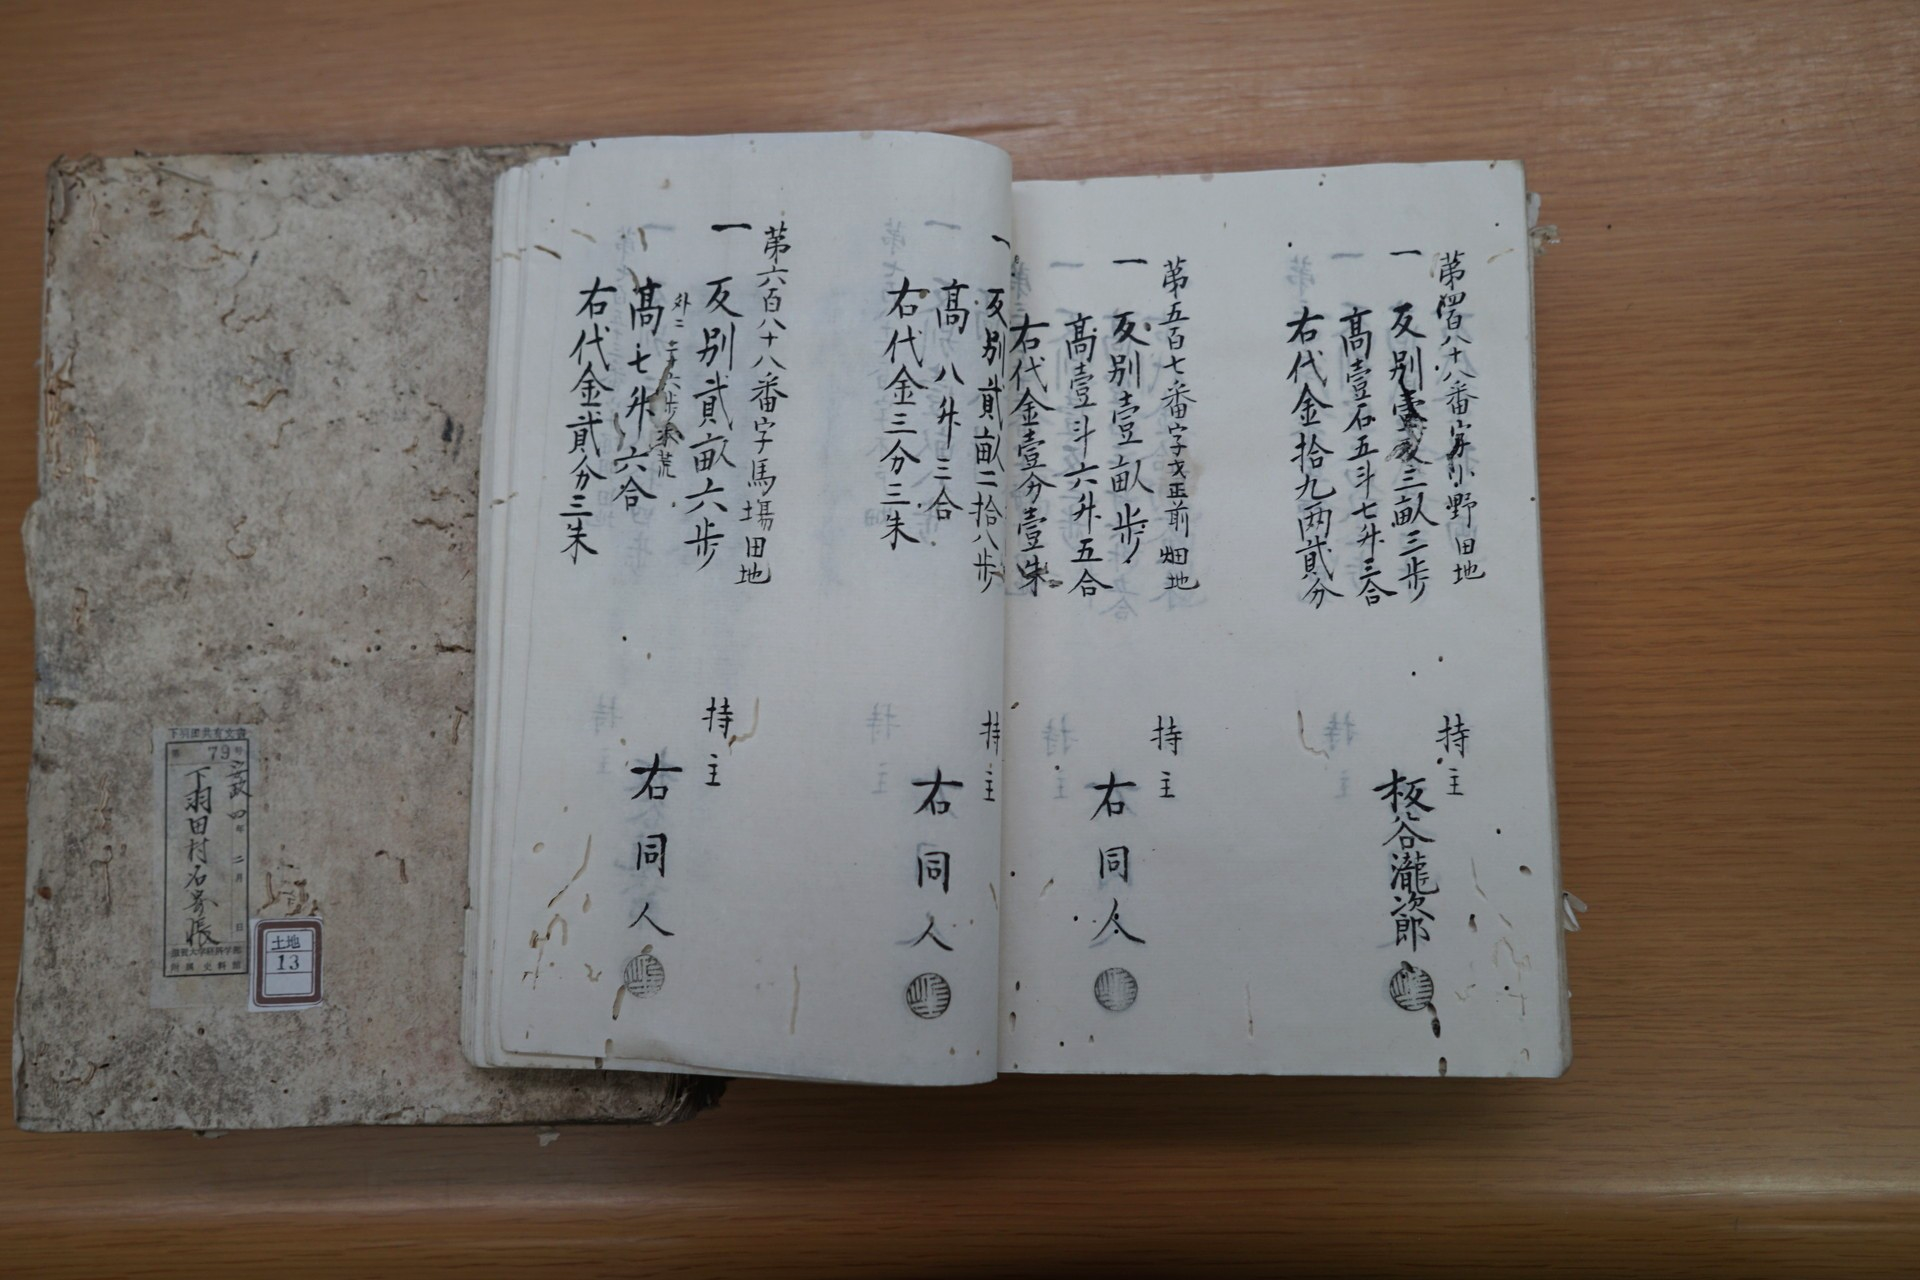 第四百八十八番字小野田地
一
反別壹反三畝三歩
高壹石五斗七升三合
右代金拾九両貳分
持主
板谷瀧次郎
第五百七番字戈正前畑地
一
反別壹畝歩
高壹斗六升五合
右代金壹分壹朱
持主
右同人
一
反別貳畝二拾八歩
高八升三合
右代金三分三朱
持主
右同人
第六百八十八番字馬場田地
一
反別貳畝六歩
外ニ
六歩
荒
高七升六合
右代金貳分三朱
持主
右同人
下羽田共有文書
79
安政四年二月日
下羽田村名寄帳
滋賀大学経済学部
附属史料館
土地
13